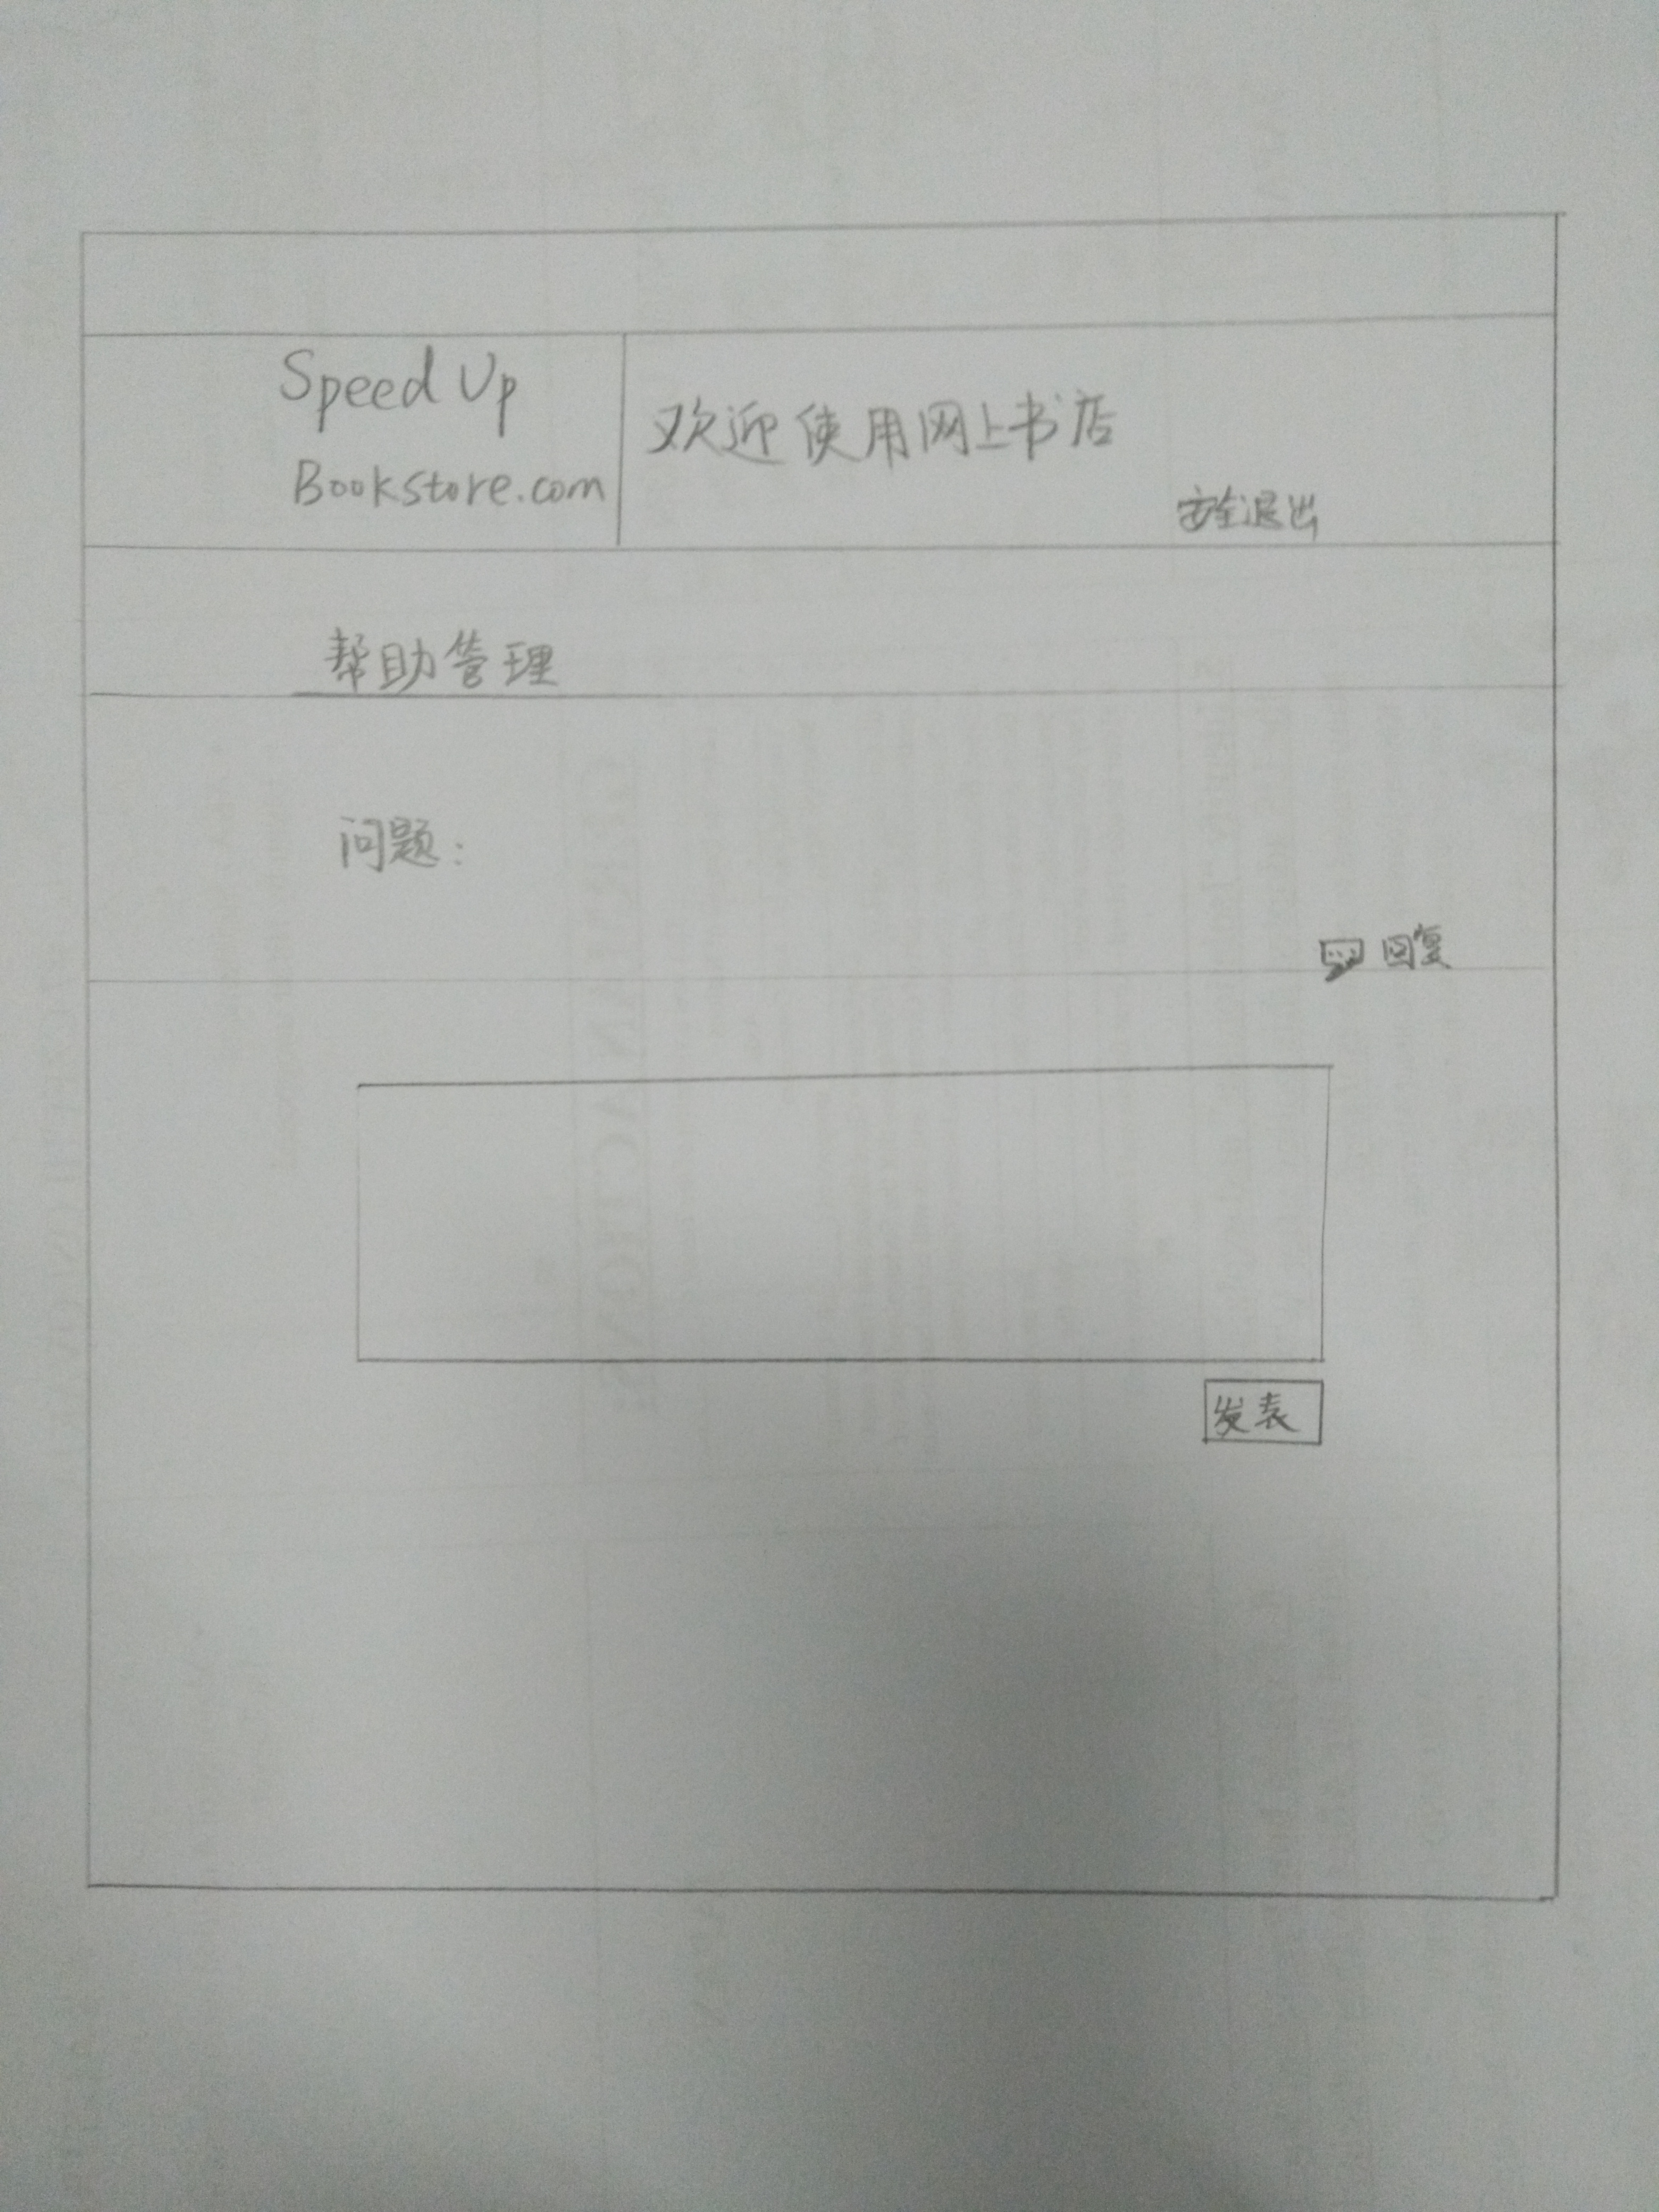 Speed Up
Bookstore.com
欢迎使用网上书店
安全退出
帮助管理
问题:
回复
发表